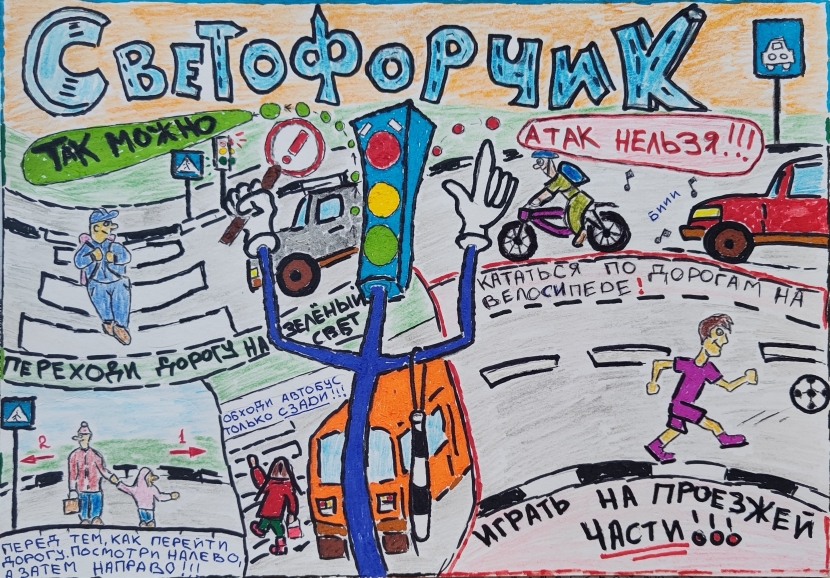 СВЕТОФОРЧИК
ТАК МОЖНО
!
А ТАК НЕЛЬЗЯ!!!
БИИИ
КАТАТЬСЯ ПО ДОРОГАМ НА
ВЕЛОСИПЕДЕ!
ПЕРЕХОДИ ДОРОГУ НА
ЗЕЛЁНЫЙ
СВЕТ
ОБХОДИ АВТОБУС
ТОЛЬКО СЗАДИ!!!
2
1
ПЕРЕД ТЕМ, КАК ПЕРЕЙТИ
ДОРОГУ. ПОСМОТРИ НАЛЕВО,
А ЗАТЕМ НАПРАВО!!!
ИГРАТЬ НА ПРОЕЗЖЕЙ
ЧАСТИ!!!